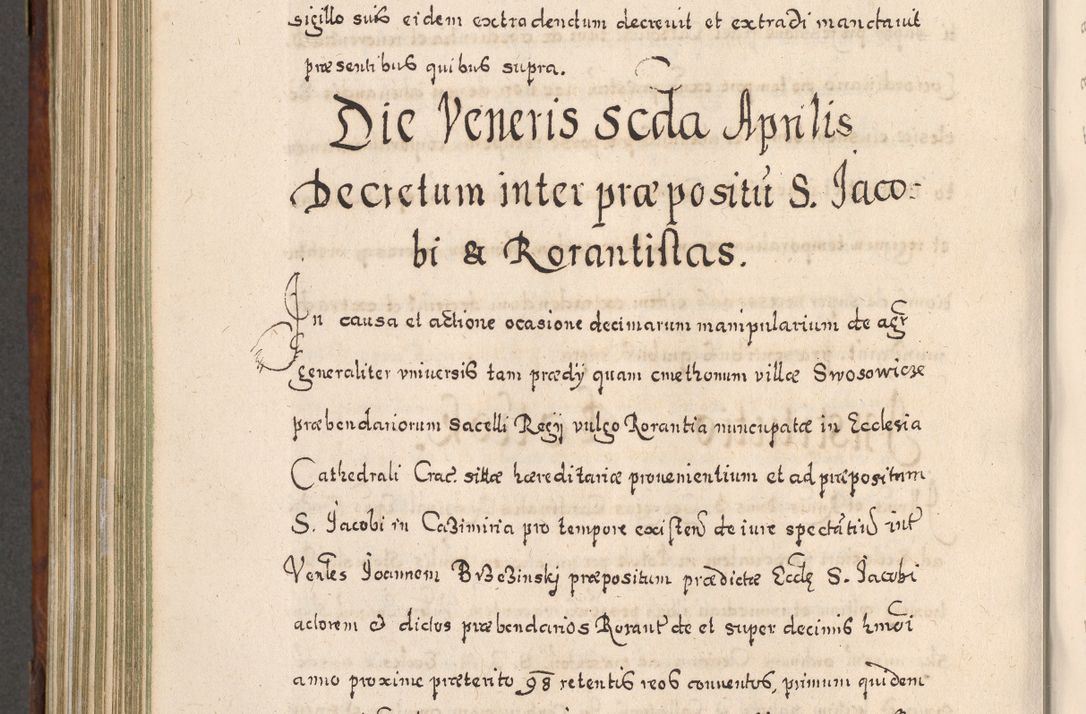 sigillo suis eidem extradendum decreuit et extradi manctauit
præsentibus quibus supra.
Die Veneris scda Aprilis
Decretum inter præpositū S. Jaco-
bi & Rorantistas.
In causa et actione ocasione decimarum manipularium de agr
generaliter vniuersis tam prædij quam cmethonum villæ Swosowicze
præbendariorum Sacelli Regij vulgo Rorantia nuncupatæ in Ecclesia
Cathedrali Crac. sittæ hæreditariæ prouenientium et ad præpositum
S. Jacobi in Cazimiria pro tempore existen de iure spectantiu int
Venles Joannem Brzezinskj præpositum prædictæ Eccle S. Jacobi
actorem & dictos præbendarios Rorant de et super decimis hmoi
anno proxime præterito 98 retentis reos conuentos, primum quidem